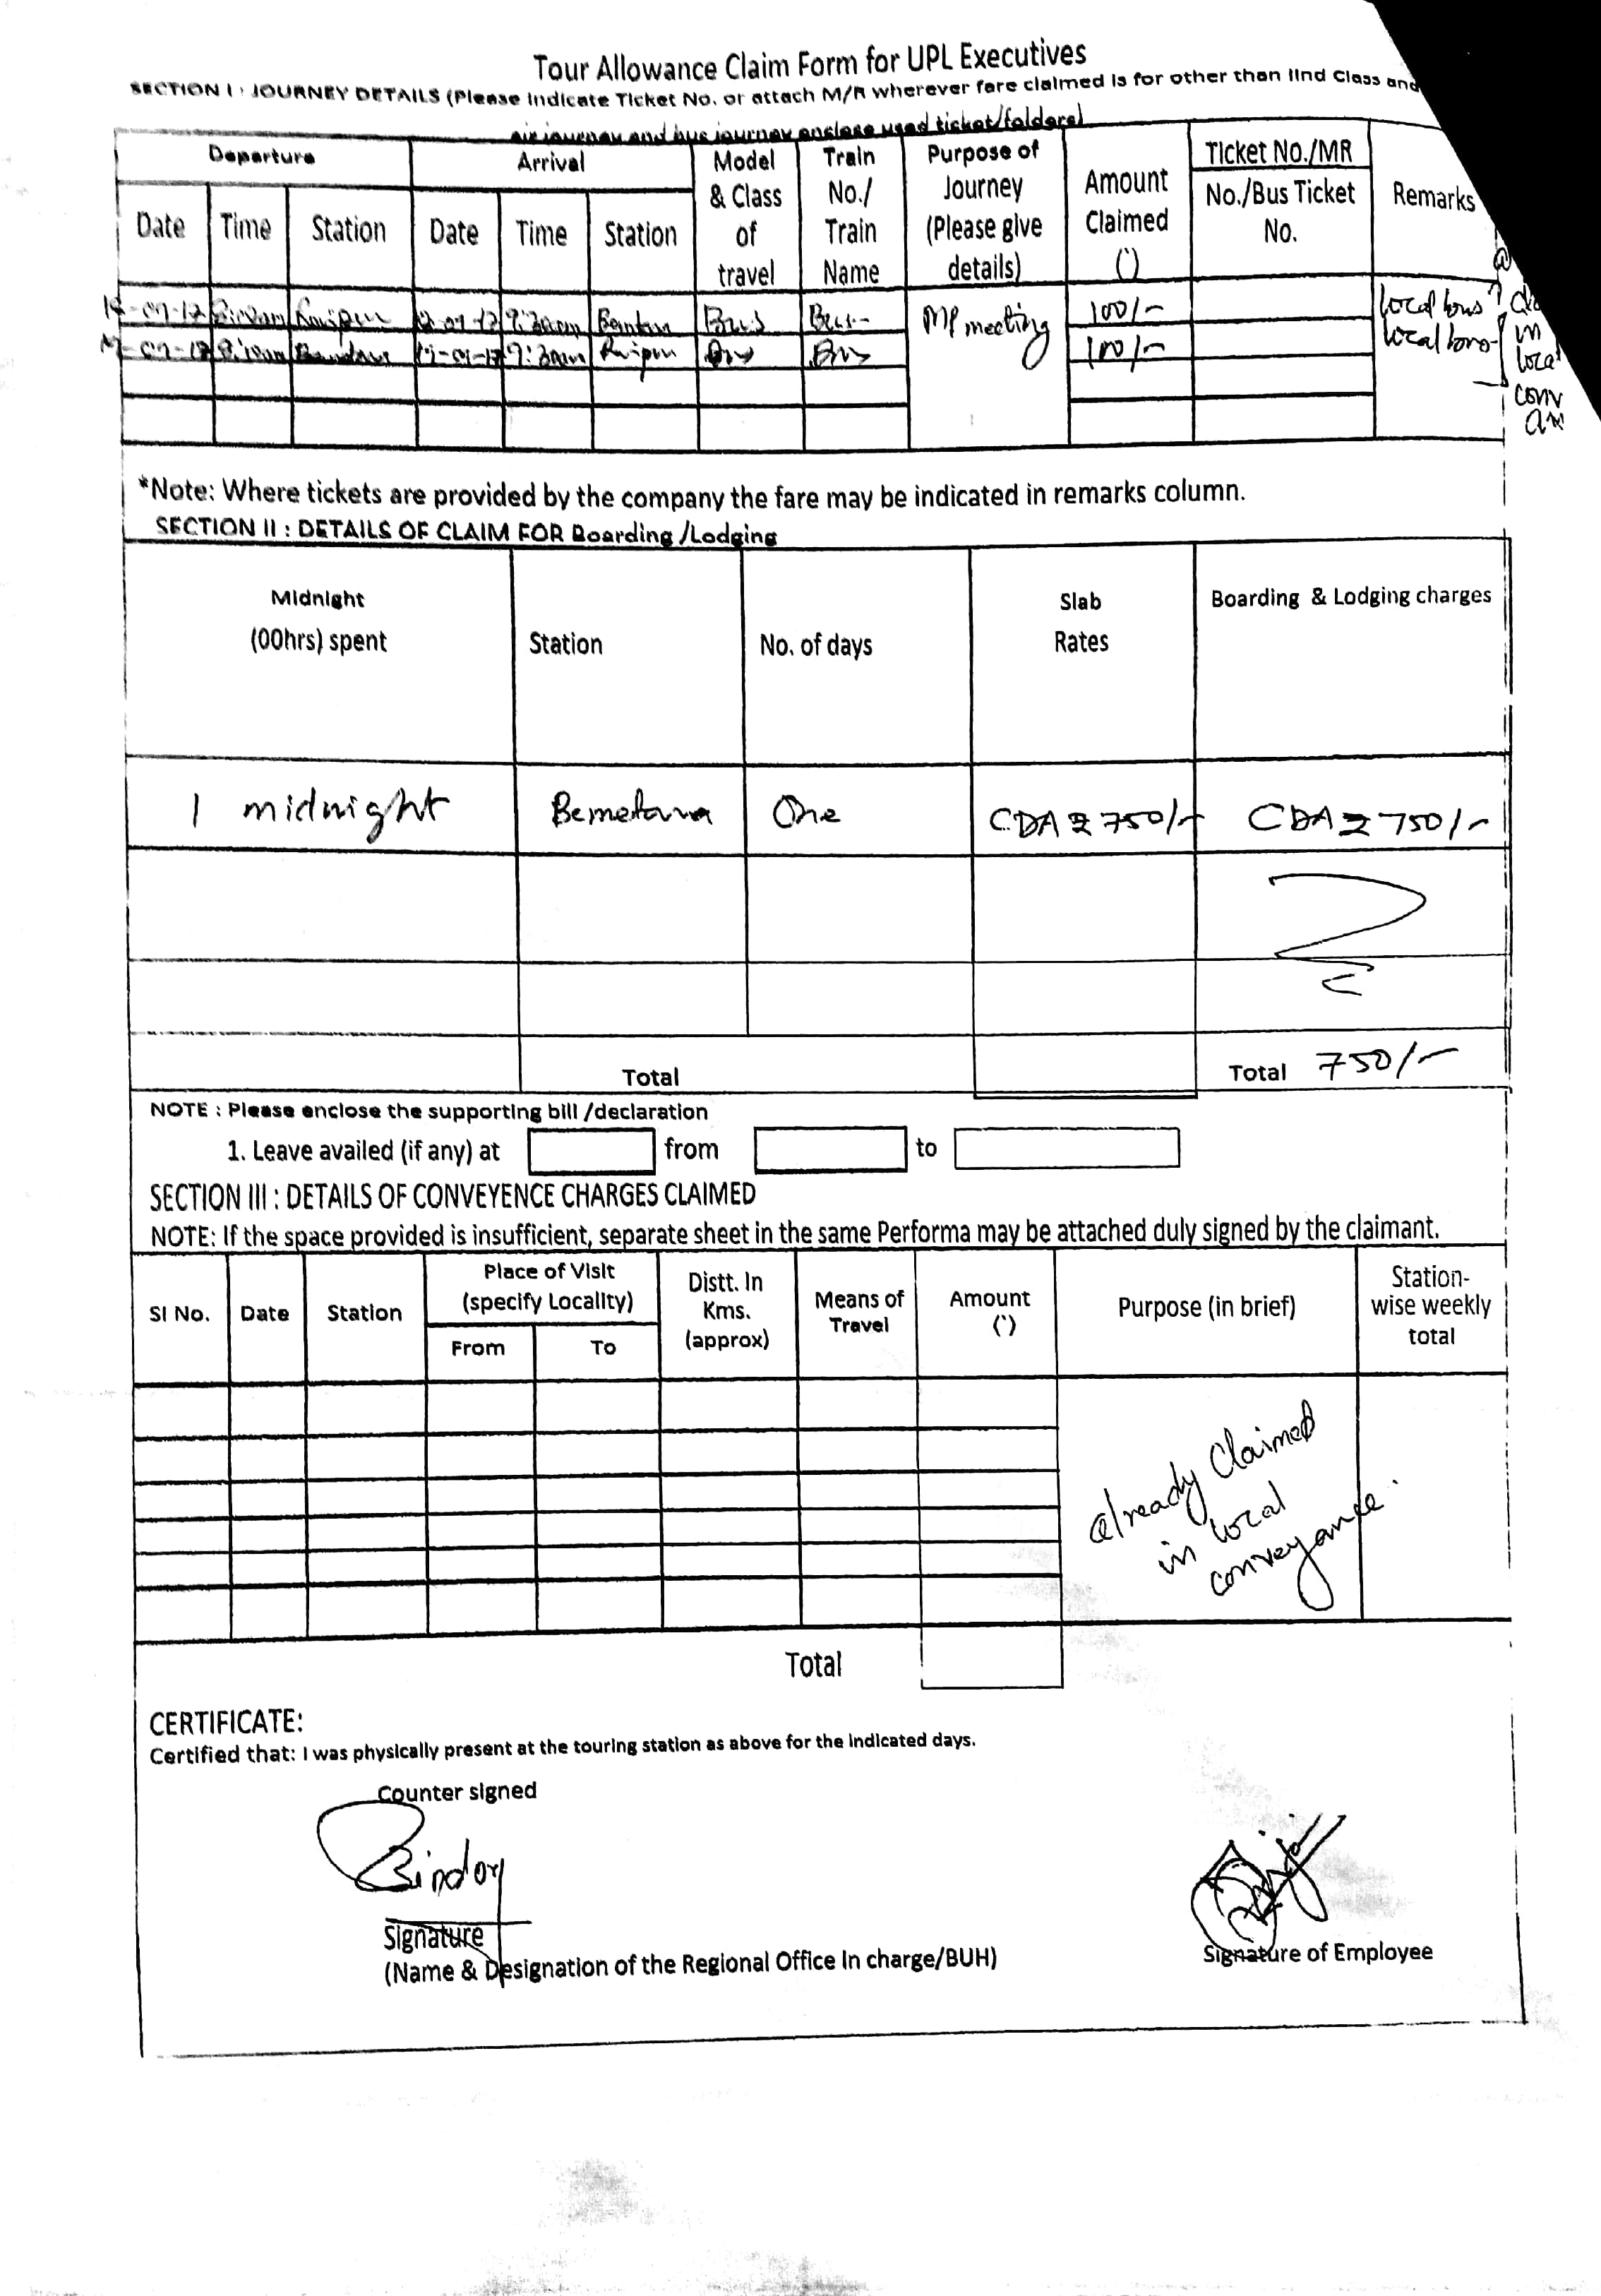 Tour Allowance Claim Form for UPL Executives
SECTION I : JOURNEY DETAILS (Please Indicate Ticket No. or attach M/R wherever fare claimed is for other than IInd Class and
air journey and bus journey enclose used ticket/folders)
Departure Arrival Model & Class of travel Train No./ Train Name Purpose of Journey (Please give details) Amount Claimed (`) Ticket No./MR No./Bus Ticket No. Remarks
Date Time Station Date Time Station
Bus MP meeting 100/- local bus
100/- local
in
*Note: Where tickets are provided by the company the fare may be indicated in remarks column.
SECTION II : DETAILS OF CLAIM FOR Boarding /Lodging
Midnight (00hrs) spent Station No. of days Slab Rates Boarding & Lodging charges
1 midnight Bemetara One CDA ₹ 750/- CDA ₹ 750/-
Total Total 750/-
NOTE : Please enclose the supporting bill /declaration
1. Leave availed (if any) at from to
SECTION III : DETAILS OF CONVEYENCE CHARGES CLAIMED
NOTE: If the space provided is insufficient, separate sheet in the same Performa may be attached duly signed by the claimant.
SI No. Date Station Place of Visit (specify Locality) Distt. In Kms. (approx) Means of Travel Amount (`) Purpose (in brief) Station-wise weekly total
From To
already Claimed
in local
conveyance.
Total
CERTIFICATE:
Certified that: I was physically present at the touring station as above for the indicated days.
Counter signed
Signature
(Name & Designation of the Regional Office In charge/BUH)
Signature of Employee